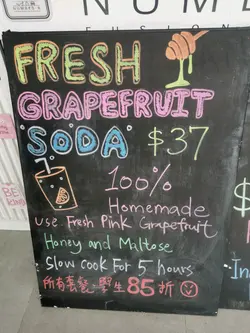 FRESH
GRAPEFRUIT
SODA $37
100%
Homemade
use Fresh Pink Grapefruit
Honey and Maltose
Slow cook For 5 hours
所有套裝學生85折